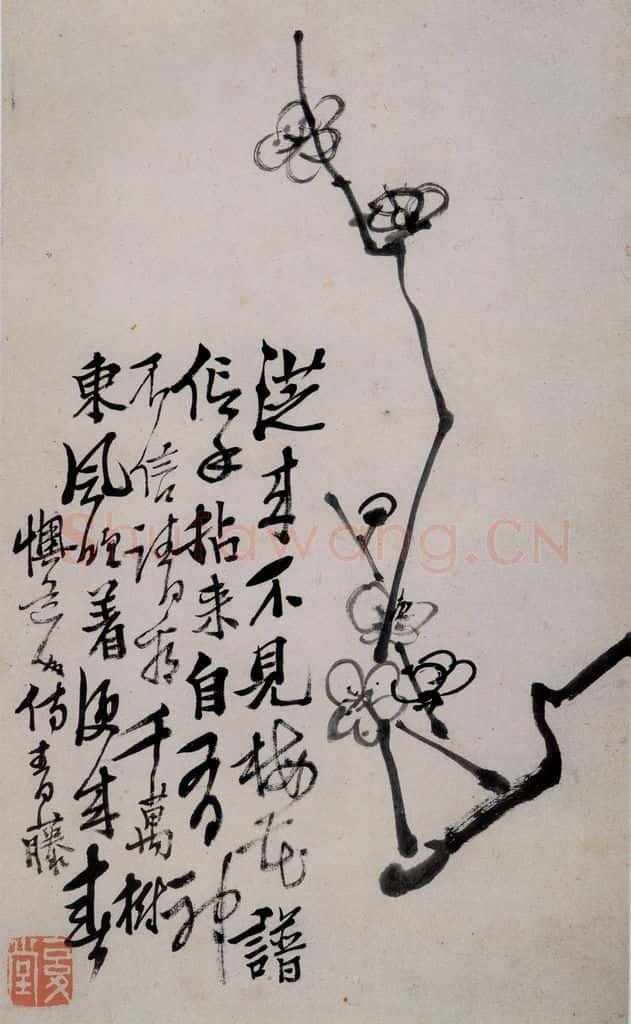 從來不見梅花譜
信手拈來自有神
不信請看千萬樹
東風吹着便成春
道人倣青藤
Shuhuawang.CN